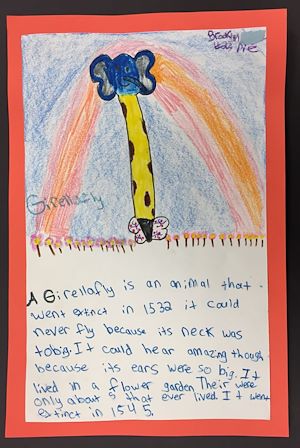 Girellafly
A Girellafly is an animal that
went extinct in 1532 it could
never fly because its neck was
tobig. It could hear amazing though
because its ears were so big. It
lived in a flower garden Their were
only about 5 that ever lived It went
extinct in 1545.